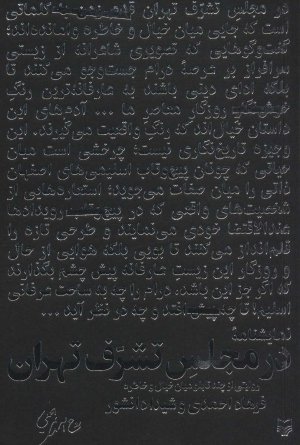 در مجلس تشرف تهران
است که جایی میان خیال و خاطره وامانده‌اند؛
گفت‌وگوهایی که تصویری شاعرانه از زیستی
سرافراز بر عرصهٔ درام جست‌وجو می‌کنند تا
بلکه ادای دینی باشند به عارفانه‌ترین رنگِ
روزگار معاصر ما ... آدم‌های این
داستان خیال‌اند که رنگ واقعیت می‌گیرند. این
وجیزه تاریخ‌نگاری نیست؛ چرخشی است میان
خیالی که چونان پیچ‌وتاب اسلیمی‌های اصفهان
ذاتی را میان صفات می‌جوید؛ استعاره‌هایی از
شخصیت‌های واقعی که در رویدادها،
عندالاقتضا خودی می‌نمایند و طرحی تازه را
قلم‌انداز می‌کنند تا بویی بلکه هوایی از حال
و روزگار این زیست عارفانه پیش چشم بگذارند
که اگر جز این باشد، درام را چه به ساحت عرفانی
اسلیم! تا چه و چه در نظر آید ...
نمایشنامهٔ
در مجلس تشرف تهران
روایتی از چند تابلو میان خیال و خاطره
فرهاد احمدی و شیدا دانشور